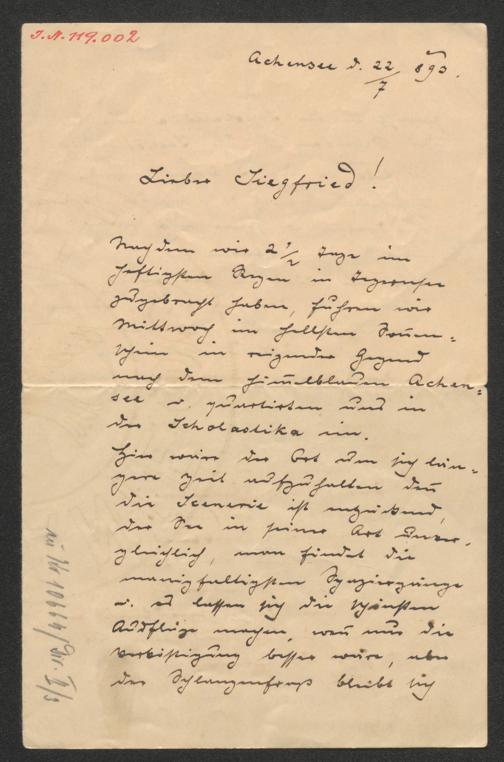 J.N. 119.002
Achensee d. 22/7 893.
Lieber Siegfried!
Nachdem wir 2 1/2 Tage im
heftigsten Regen in Tegernsee
zugebracht haben, fuhren wir
Mittwoch im hellsten Sonen-
schein in reizender Gegend
nach dem himelblauen Achen-
see u. quartirten uns in
der Scholastika ein.
Hier wäre der Ort um sich län-
gere Zeit aufzuhalten den
die Scenerie ist entzückend,
der See in seiner Art unver-
gleichlich, man findet die
manigfaltigsten Spaziergänge
u. es lassen sich die schönsten
Ausflüge machen, wen nur die
Verköstigung besser wäre, aber
der Schlangenfraß bleibt sich